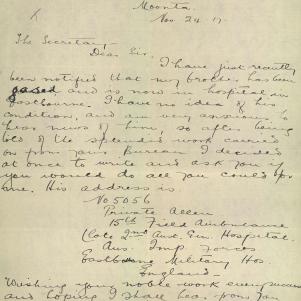 Moonta.
Nov 24. 17.
The Secretary,
Dear Sir,
I have just recently
been notified that my brother has been
gassed and is now in hospital in
Eastbourne. I have no idea of his
condition, and am very anxious to
hear news of him, so after being
told of the splendid work carried
on from your Bureau I decided
at once to write and ask you if
you would do all you could for
me. His address is.
No 5056
Private Allen
15th Field Ambulance
(late 2nd Aus. Gen. Hospital.
Aus. Imp. Forces
Eastbourne Military Hos.
England -
Wishing your noble work every success
and hoping I shall hear from you